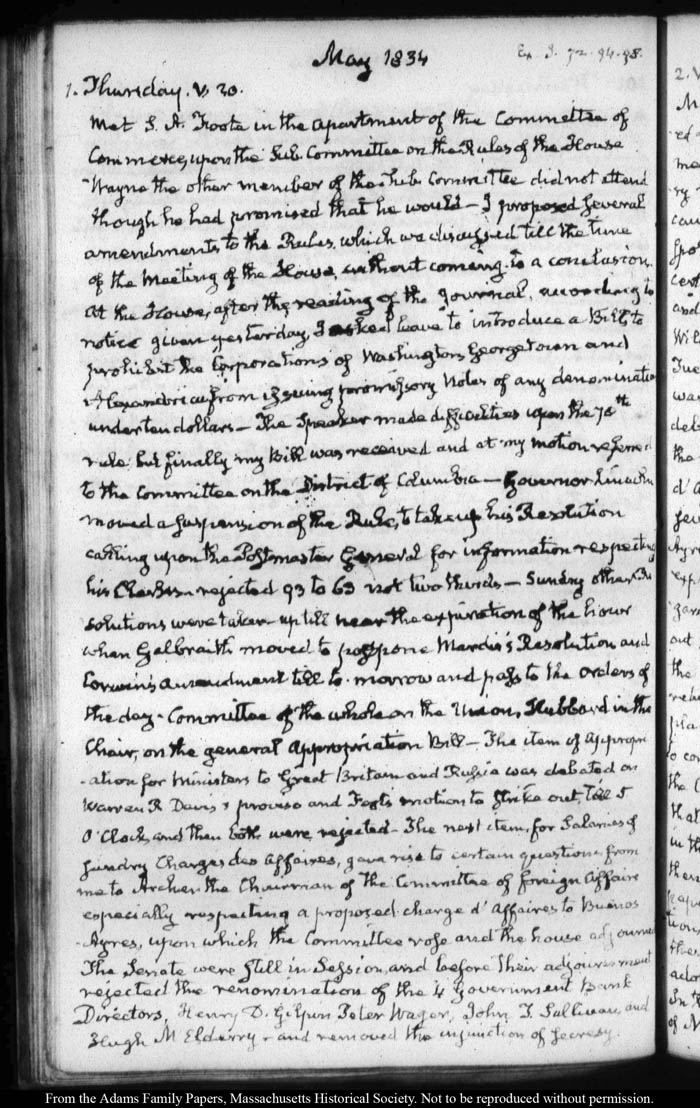 May 1834
Ex. S. 72.94.98.
1. Thursday. V. 30.
Met S. A. Foote in the apartment of the Committee of
Commerce, upon the Sub. Committee on the Rules of the House
Wayne the other member of the Sub. Committee did not attend
though he had promised that he would — I proposed several
amendments to the Rules, which we discussed till the time
of the Meeting of the House, without coming to a conclusion.
At the House, after the reading of the journal, according to
notice given yesterday, I asked leave to introduce a Bill, to
prohibit the Corporations of Washington, Georgetown and
Alexandria, from issuing promissory Notes of any denomination
under ten dollars — The Speaker made difficulties upon the 78th
rule but finally my Bill was received and at my motion referred
to the Committee on the District of Columbia — Governor
moved a suspension of the Rule, to take up his Resolution
calling upon the Postmaster General for information respecting
his Clerks — rejected 93 to 63 not two thirds — Sundry other Re
solutions were taken up till near the expiration of the hour
when Galbraith moved to postpone Mardis's Resolution and
Corwin's amendment till to-morrow and pass to the orders of
the day. Committee of the whole on the Union, Hubbard in the
Chair, on the general Appropriation Bill — The item of Appropri
-ation for Ministers to Great Britain and Russia was debated on
Warren R Davis's proviso and Foot's motion to strike out, till 5
O'Clock, and then both were rejected — The next item, for Salaries of
sundry Charges des Affaires, gave rise to certain questions from
me to Archer the Chairman of the Committee of foreign Affairs
especially respecting a proposed charge d'Affaires to Buenos
-Ayres, upon which the Committee rose and the house adjourned
The Senate were still in Session, and before their adjournment
rejected the renomination of the 4 Government Bank
Directors, Henry D. Gilpin Peter Wager, John T. Sullivan, and
Hugh McElderry — and removed the injunction of secrecy.
From the Adams Family Papers, Massachusetts Historical Society. Not to be reproduced without permission.